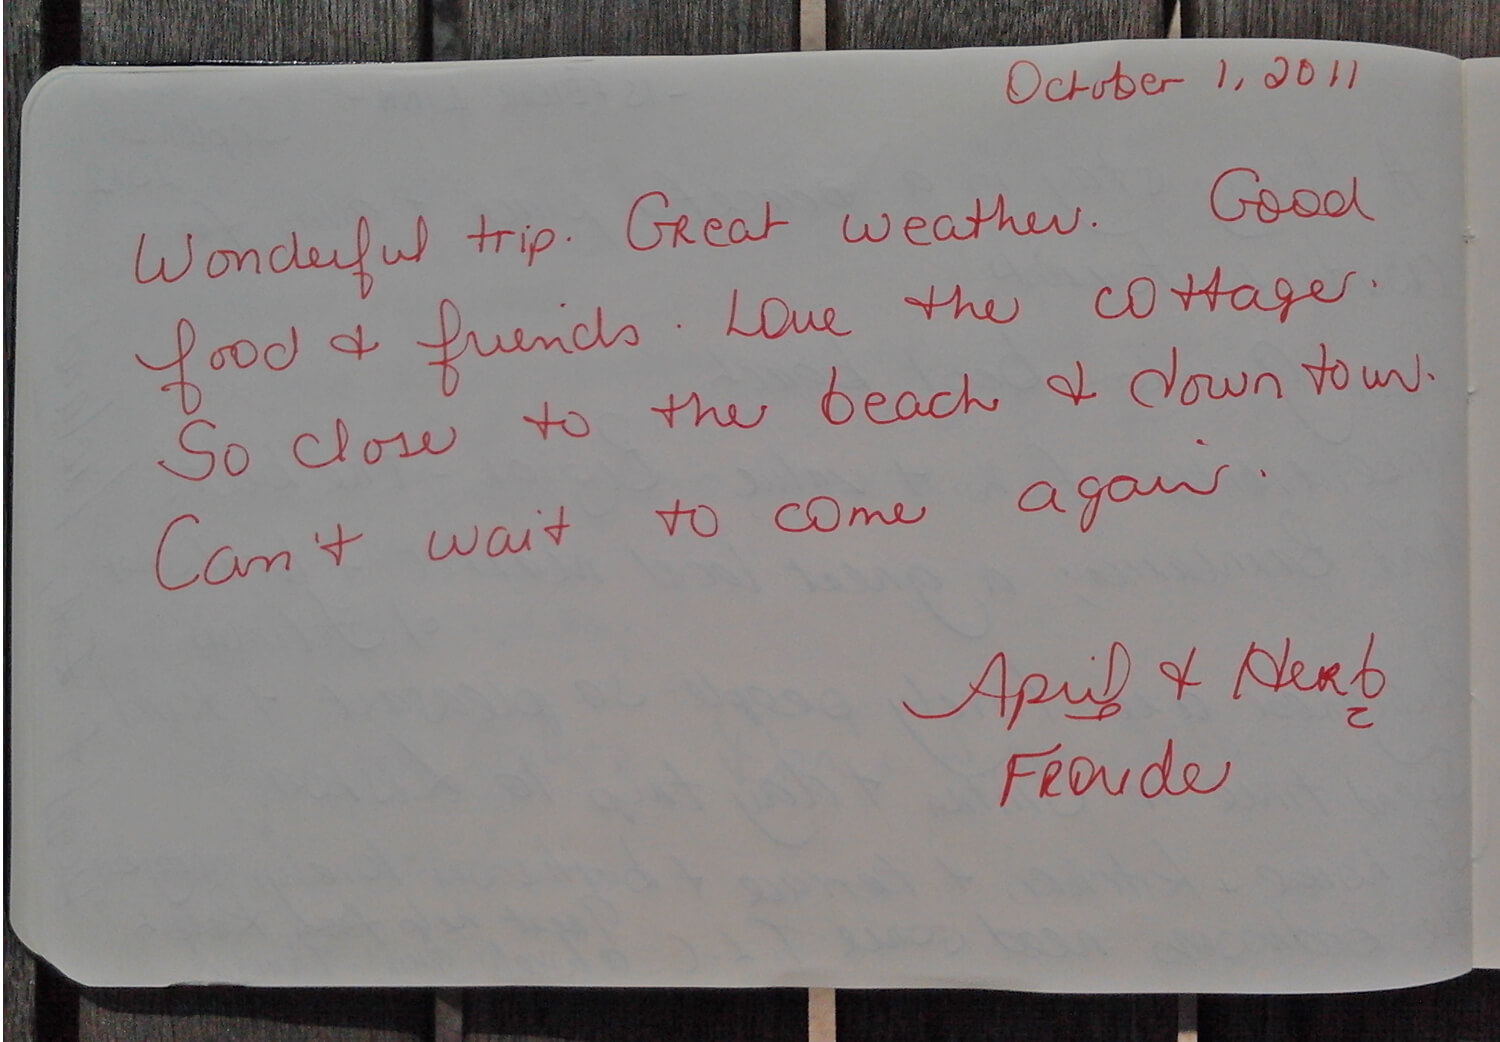 October 1, 2011
Wonderful trip. Great weather. Good
food & friends. Love the cottage.
So close to the beach & down town.
Can't wait to come again.
April & Herb
Froude